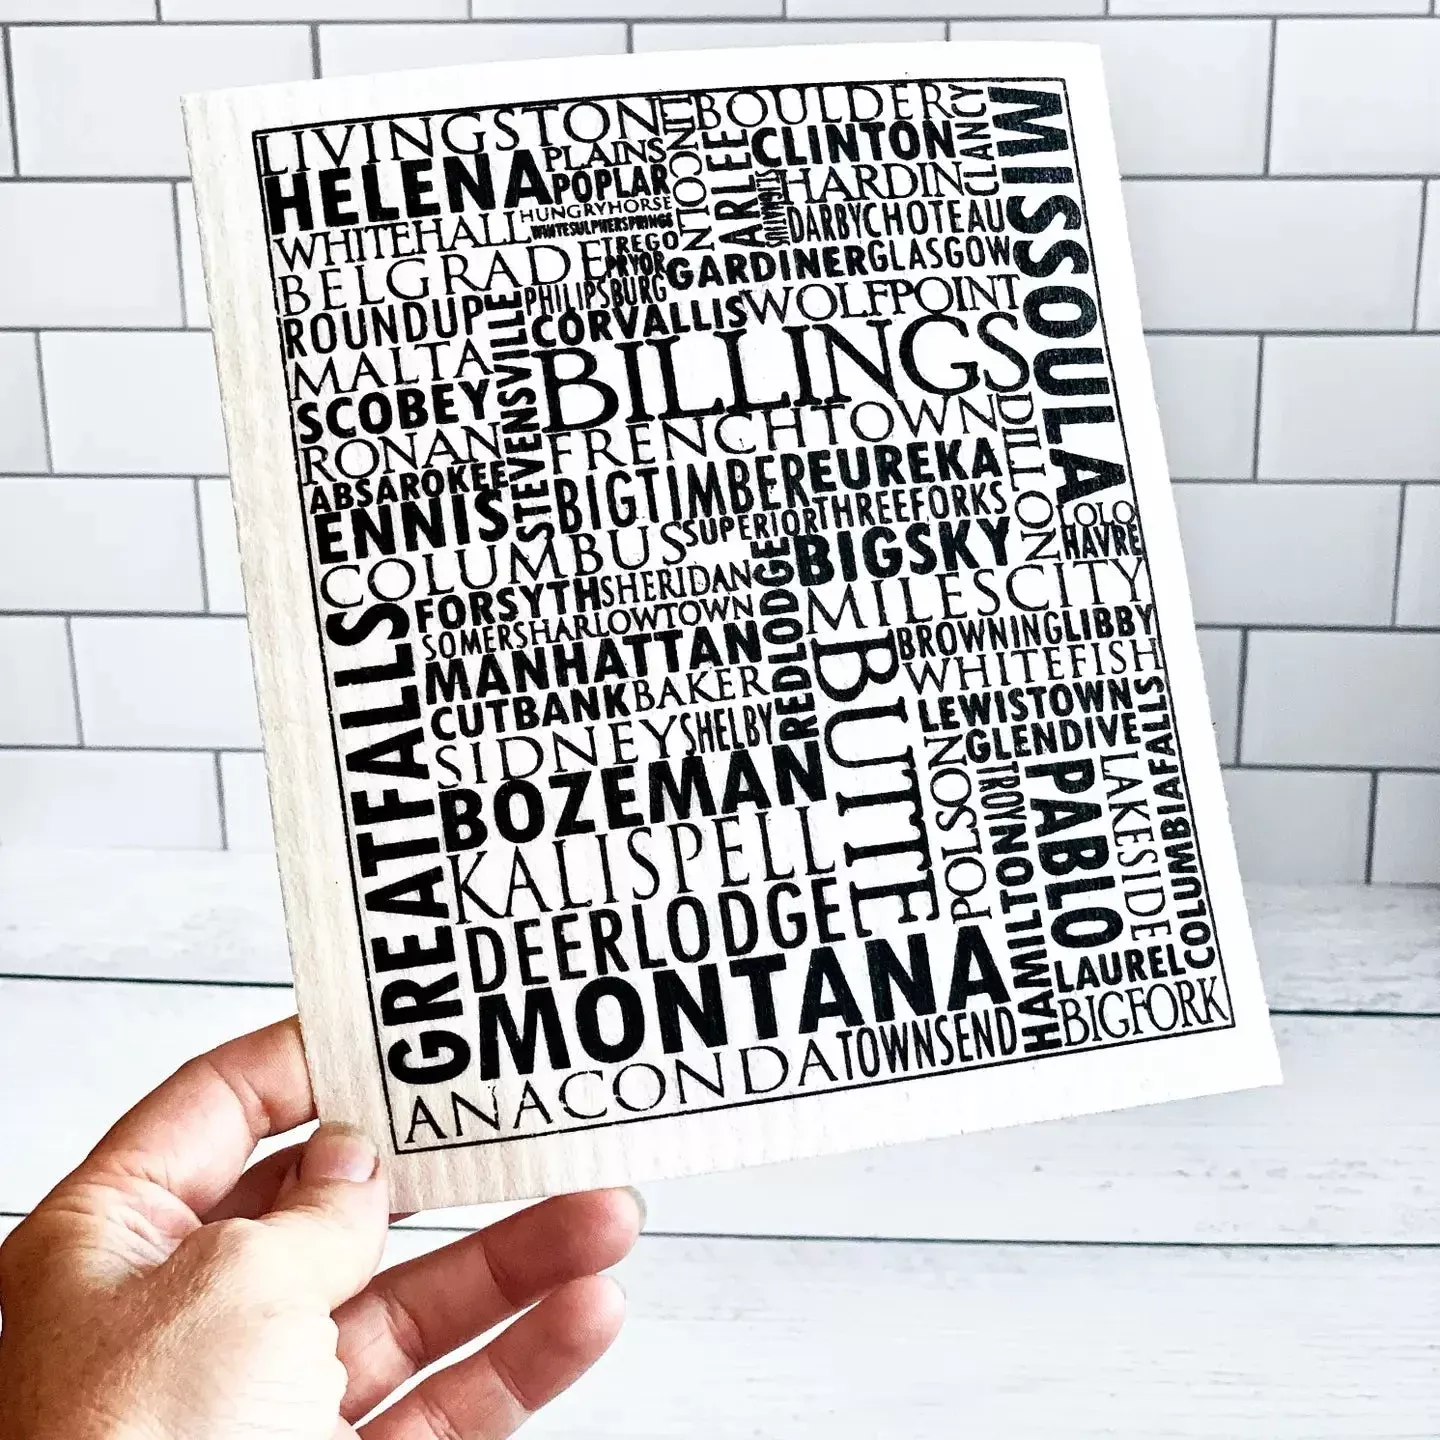 LIVINGSTON
BOULDER
CLANCY
MISSOULA
HELENA
PLAINS
ARLEE
CLINTON
POPLAR
HARDIN
HUNGRYHORSE
WHITEHALL
WHITESULPHERSPRINGS
DARBY
CHOTEAU
TREGO
BELGRADE
PRYOR
GARDINER
GLASGOW
PHILIPSBURG
ROUNDUP
STEVENSVILLE
CORVALLIS
WOLFPOINT
MALTA
BILLINGS
SCOBEY
FRENCHTOWN
DILLON
RONAN
ABSAROKEE
BIGTIMBER
EUREKA
ENNIS
SUPERIOR
THREEFORKS
LOLO
HAVRE
COLUMBUS
BIGSKY
FORSYTH
SHERIDAN
REDLODGE
MILESCITY
SOMERS
HARLOWTOWN
BROWNING
LIBBY
GREATFALLS
MANHATTAN
BUTTE
WHITEFISH
CUTBANK
BAKER
LEWISTOWN
SIDNEY
SHELBY
GLENDIVE
COLUMBIAFALLS
BOZEMAN
POLSON
TROY
PABLO
LAKESIDE
KALISPELL
HAMILTON
DEERLODGE
LAUREL
MONTANA
BIGFORK
ANACONDA
TOWNSEND